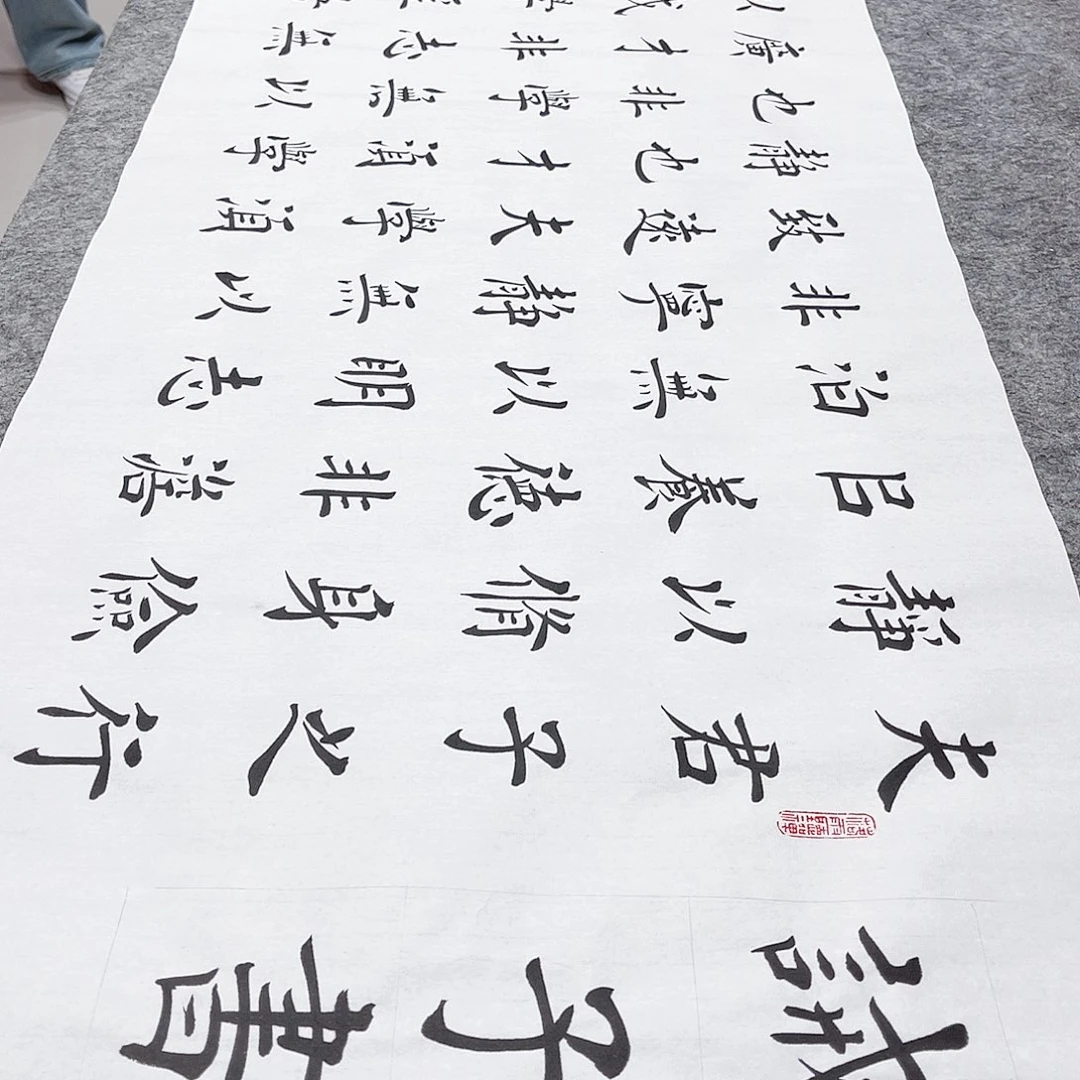 誡子書
夫君子之行
靜以脩身儉
㠯養德非澹
泊無以明志
非寧靜無以
致遠夫學須
靜也才須學
也非學無以
廣才非志無
以成學